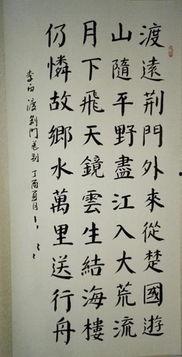 渡遠荊門外來從楚國遊
山隨平野盡江入大荒流
月下飛天鏡雲生結海樓
仍憐故鄉水萬里送行舟
李白渡荊門送別丁酉夏月